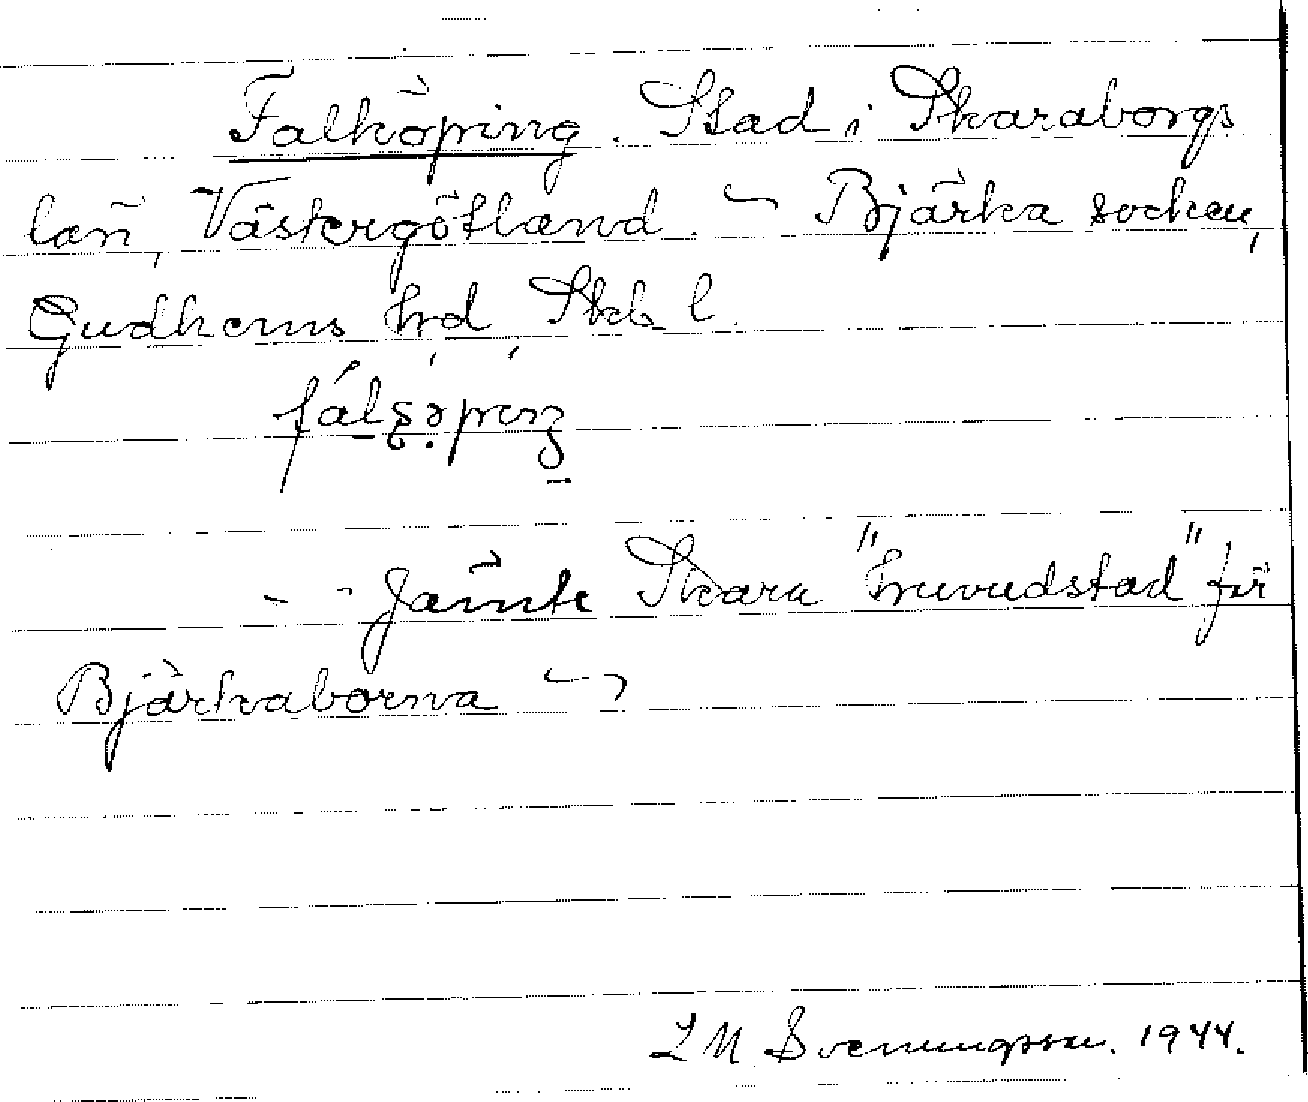 Falköping. Stad i Skaraborgs
län, Västergötland. – Bjärka socken,
Gudhems hrd Skb l.
– – Jämte Skara "huvudstad" för
Bjärkaborna –
L M Svenungsson. 1944.